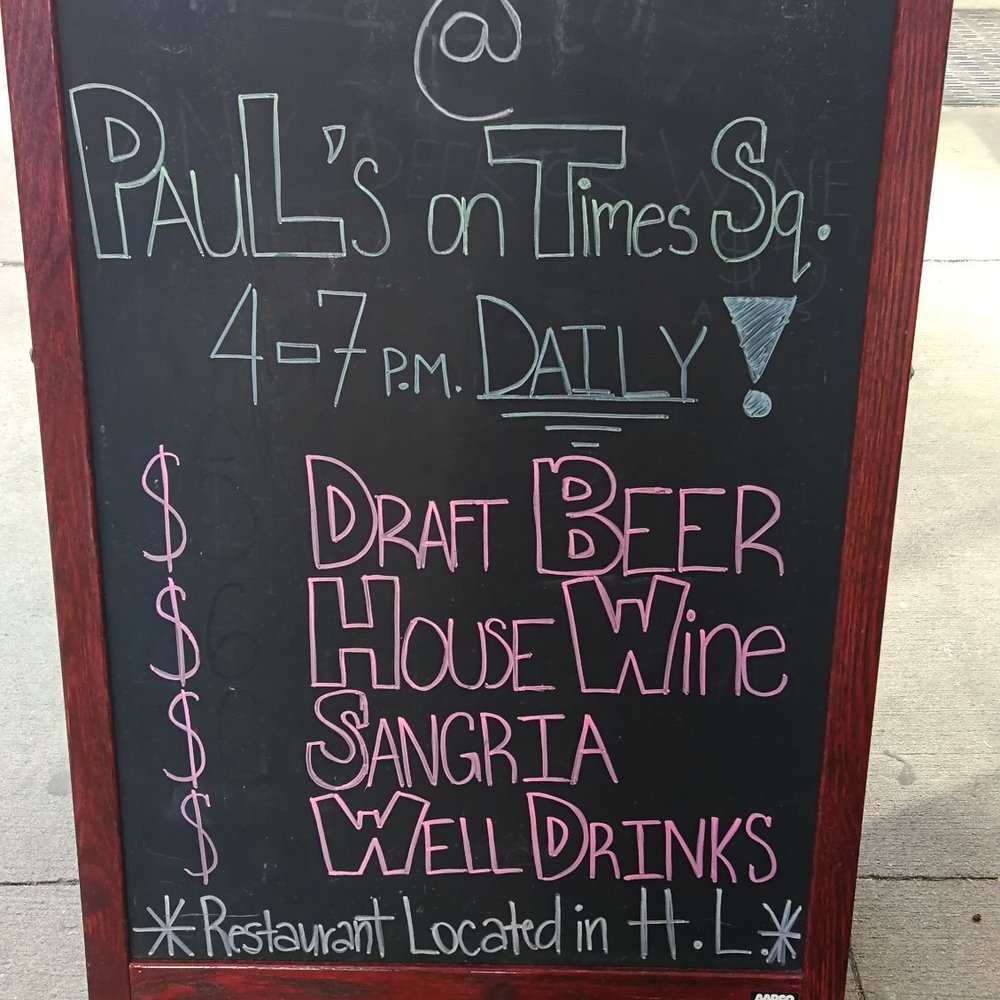 @
PAUL'S on Times Sq.
4-7 P.M. DAILY!
$ DRAFT BEER
$ HOUSE Wine
$ SANGRIA
$ WELL DRINKS
*Restaurant Located in H.L.*